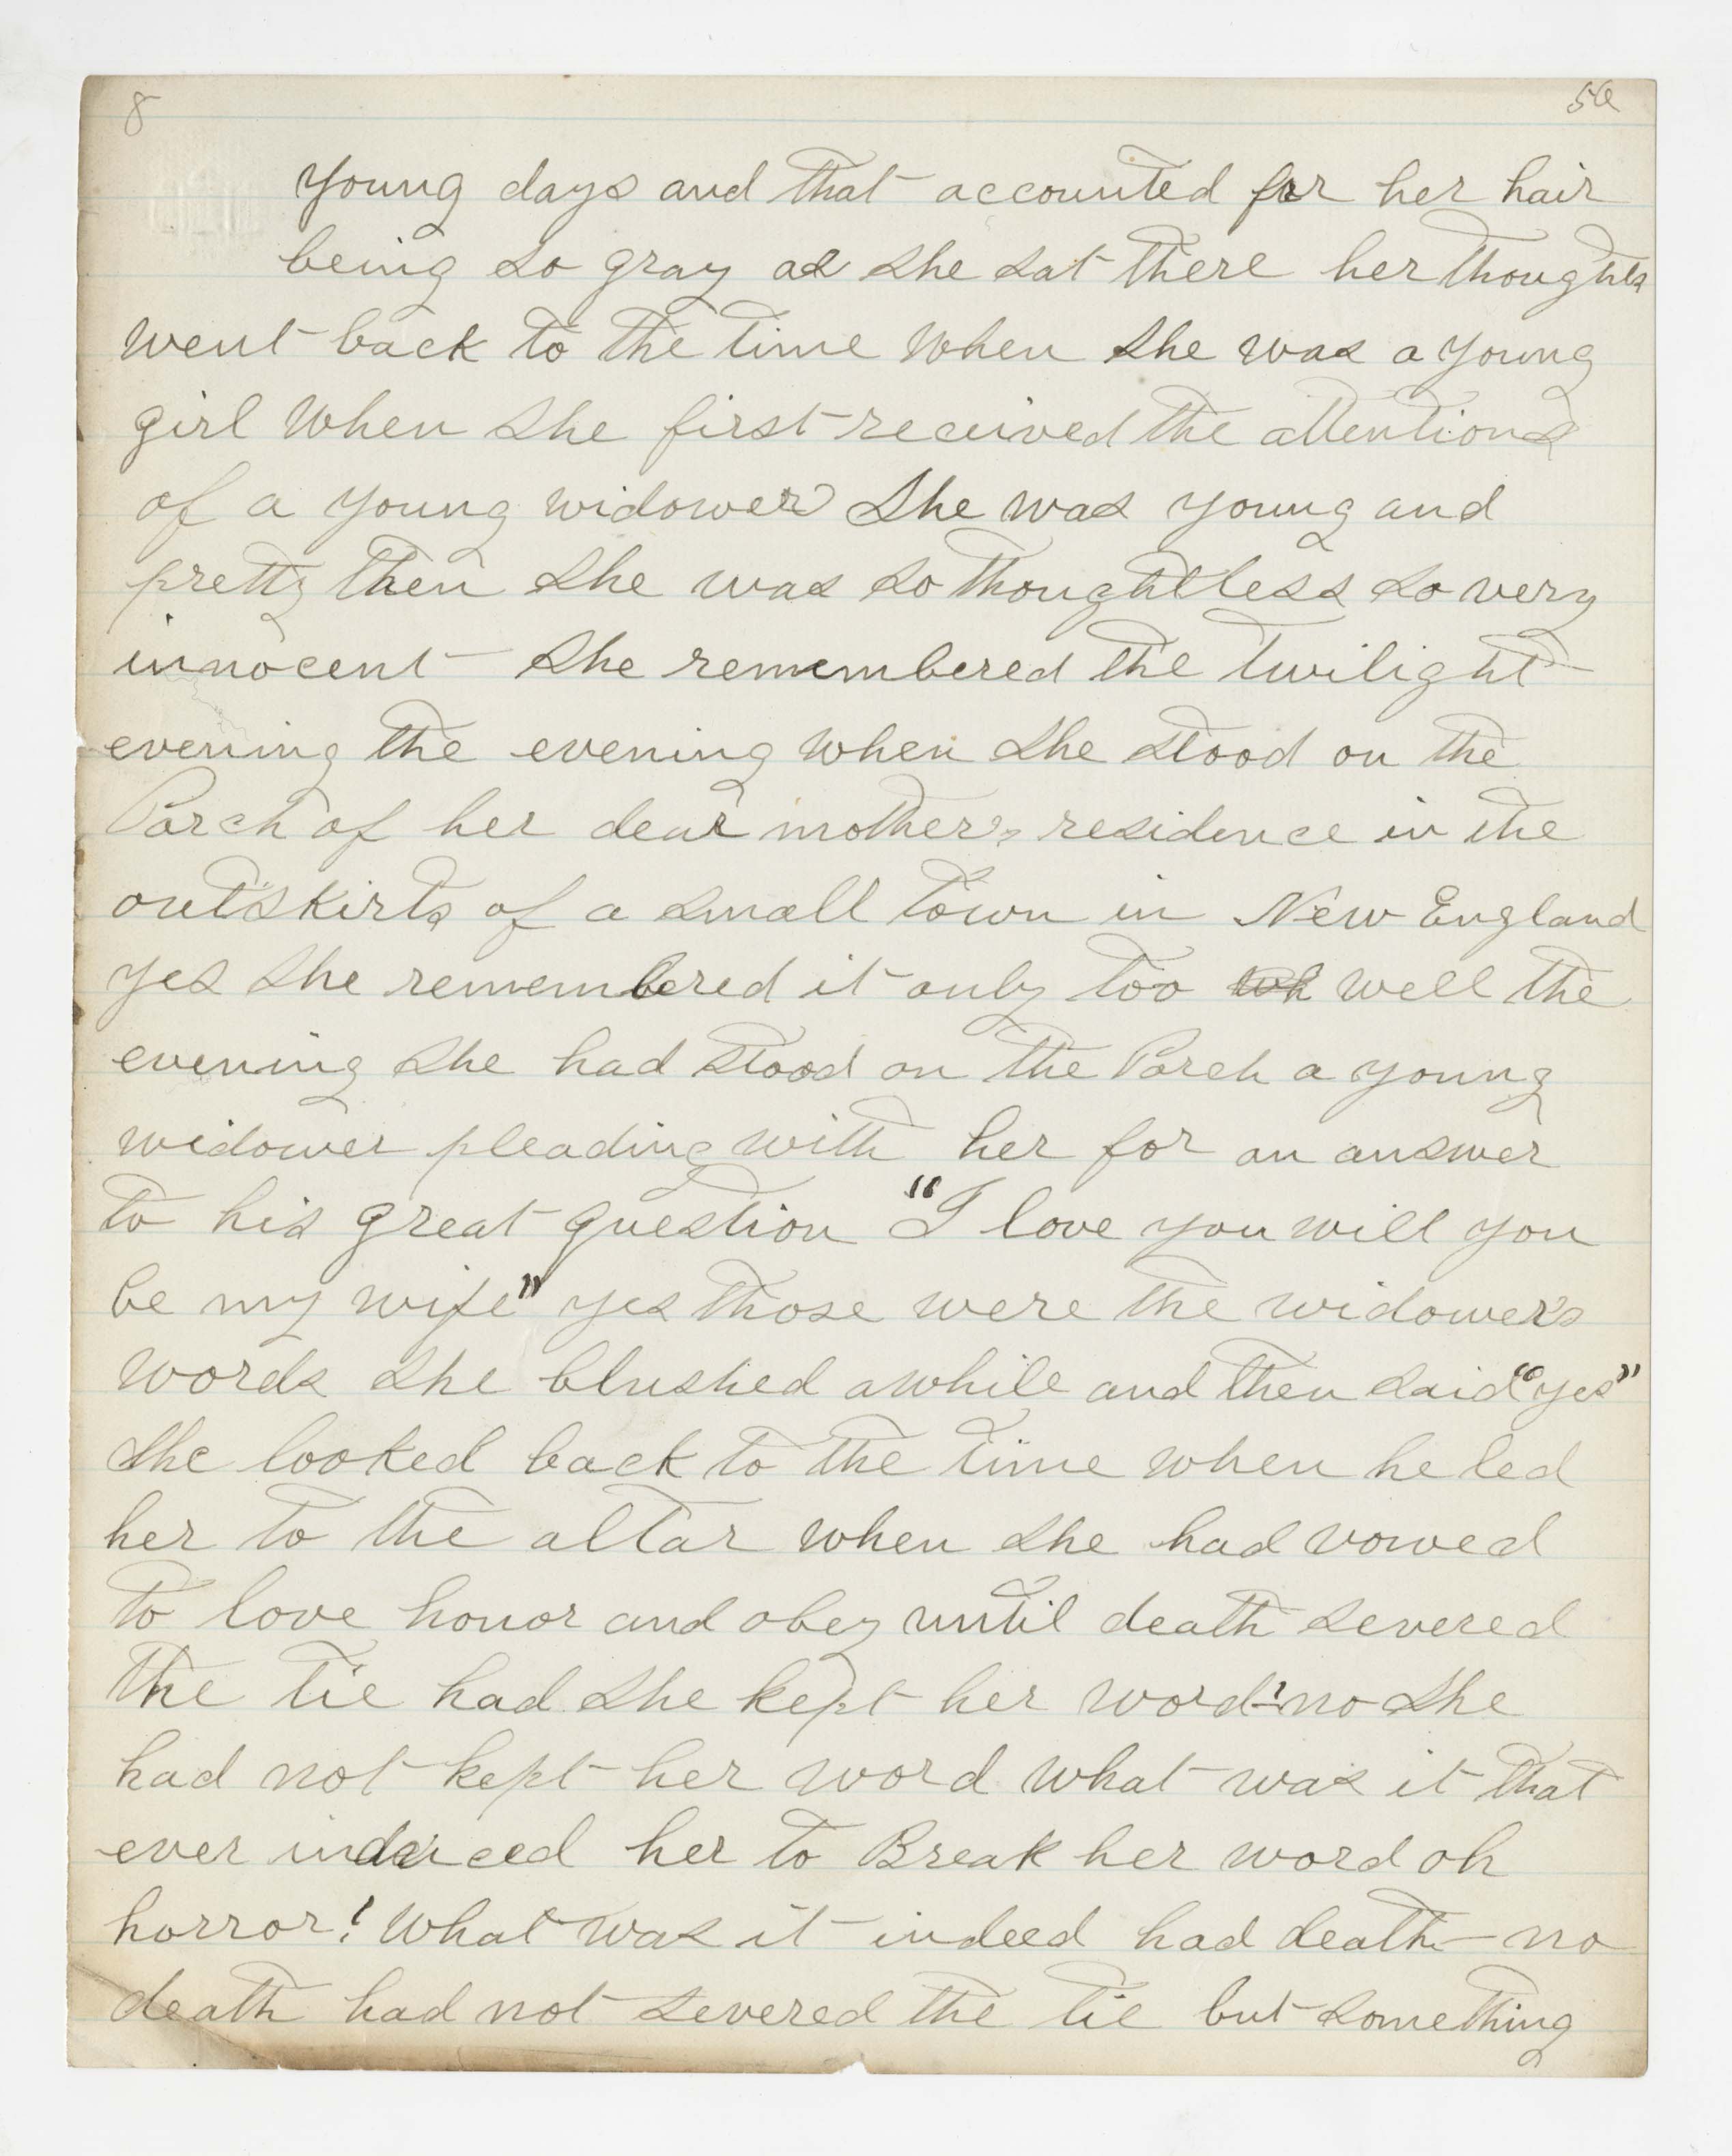 8 50
Young days and that accounted for her hair
being so gray as she sat there her thoughts
went back to the time when she was a young
girl when she first received the attentions
of a young widower She was young and
pretty then she was so thoughtless so very
innocent she remembered the twilight
evening the evening when she stood on the
Porch of her dear mother's residence in the
outskirts of a small town in New England
yes she remembered it only too well the
evening she had stood on the Porch a young
widower pleading with her for an answer
to his great question "I love you will you
be my wife" yes those were the widower's
words she blushed awhile and then said "yes"
she looked back to the time when he led
her to the altar when she had vowed
to love honor and obey until death severed
the tie had she kept her word! no she
had not kept her word what was it that
ever induced her to Break her word oh
horror! What was it indeed had death no
death had not severed the tie but something